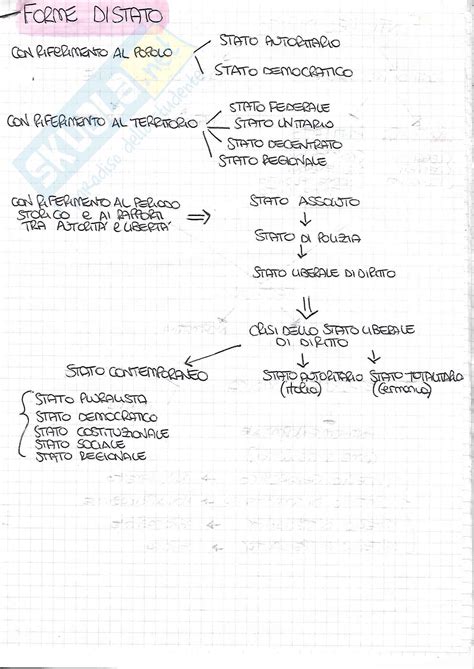 FORME DI STATO
CON RIFERIMENTO AL POPOLO
STATO AUTORITARIO
STATO DEMOCRATICO
CON RIFERIMENTO AL TERRITORIO
STATO FEDERALE
STATO UNITARIO
STATO DECENTRATO
STATO REGIONALE
CON RIFERIMENTO AL PERIODO
STORICO E AI RAPPORTI
TRA AUTORITÀ E LIBERTÀ
STATO ASSOLUTO
STATO DI POLIZIA
STATO LIBERALE DI DIRITTO
CRISI DELLO STATO LIBERALE
DI DIRITTO
STATO CONTEMPORANEO
STATO AUTORITARIO
(italia)
STATO TOTALITARIO
(Germania)
STATO PLURALISTA
STATO DEMOCRATICO
STATO COSTITUZIONALE
STATO SOCIALE
STATO REGIONALE
skuola